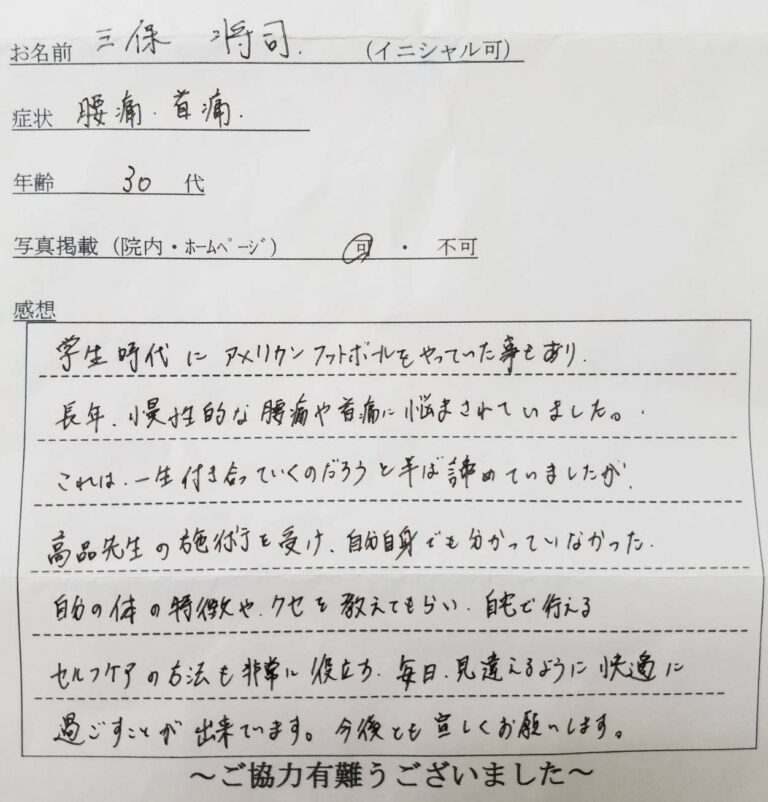 お名前 三保 将司. (イニシャル可)
症状 腰痛.首痛.
年齢 30 代
写真掲載(院内・ホームページ) 可 ・ 不可
感想
学生時代にアメリカンフットボールをやっていた事もあり.
長年、慢性的な腰痛や首痛に悩まされていました。
これは.一生付き合っていくのだろうと半ば諦めていましたが.
高品先生の施術を受け、自分自身でも分かっていなかった.
自分の体の特徴や、クセを教えてもらい.自宅で行える
セルフケアの方法も非常に役立ち.毎日.見違えるように快適に
過ごすことが出来ています。今後とも宜しくお願いします。
～ご協力有難うございました～